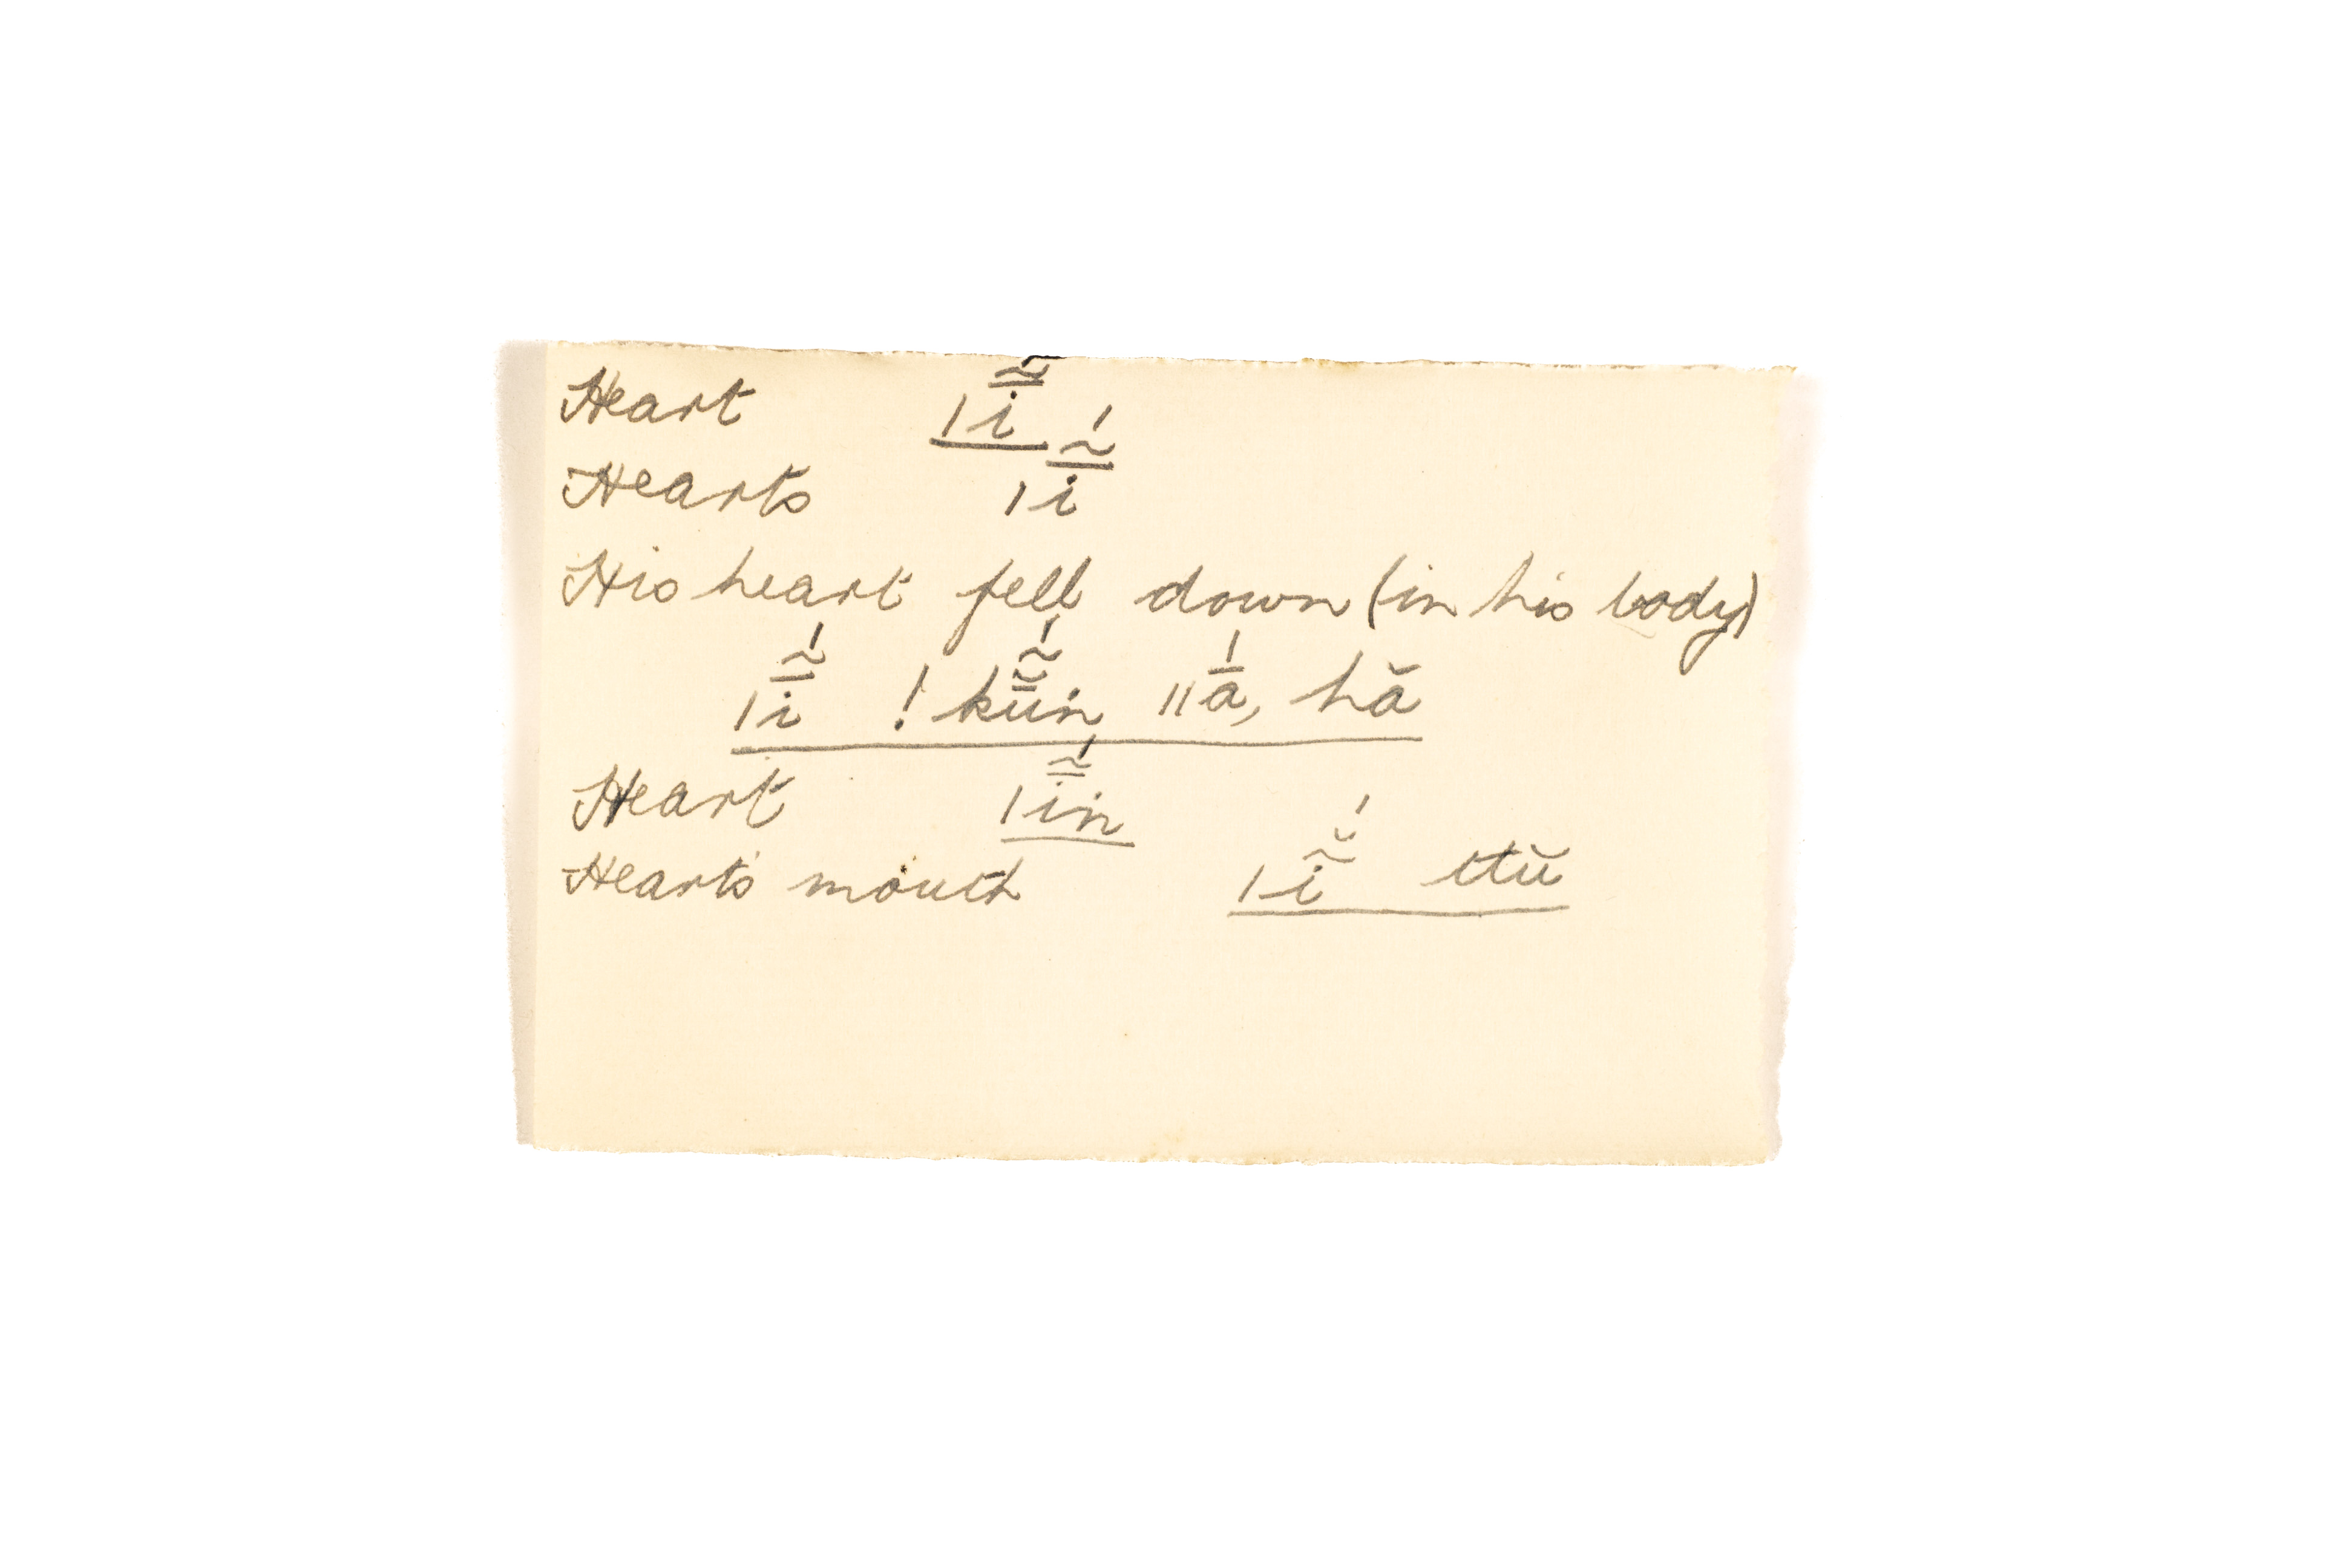 Heart ǀī̃
Hearts ǀī̃́
His heart fell down (in his body)
ǀī̃́ ǃkṵ̄̆̃́ṅ ǁā́, hă
Heart ǀī̃́ṅ
Heart's mouth ǀĩ̆́ ttŭ